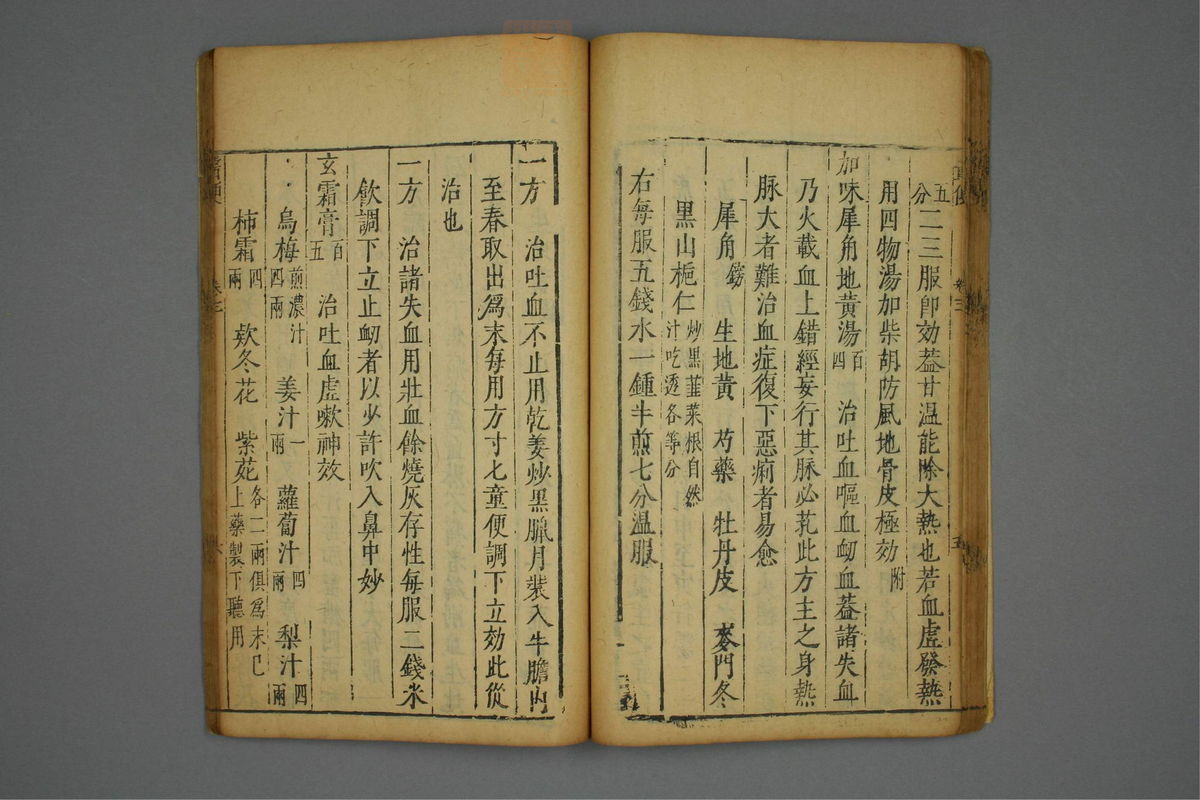 五分二三服卽効葢甘温能除大熱也若血虛發熱
用四物湯加柴胡防風地骨皮極効附
加味犀角地黃湯百四 治吐血嘔血衂血葢諸失血
乃火載血上錯經妄行其脉必芤此方主之身熱
脉大者難治血症復下惡痢者易愈
犀角鎊 生地黃 芍藥 牡丹皮 麥門冬
黑山梔仁炒黑韮菜根自然汁吃透各等分
右每服五錢水一鍾半煎七分温服
一方 治吐血不止用乾姜炒黑臘月裝入牛膽內
至春取出爲末每用方寸七童便調下立効此從
治也
一方 治諸失血用壯血餘燒灰存性每服二錢米
飲調下立止衂者以少許吹入鼻中妙
玄霜膏百五 治吐血虛嗽神效
烏梅煎濃汁四兩 姜汁一兩 蘿蔔汁四兩 梨汁四兩
柿霜四兩 欵冬花 紫菀各二兩俱爲末已上藥製下聽用
醫便 卷三 六
卷三 五